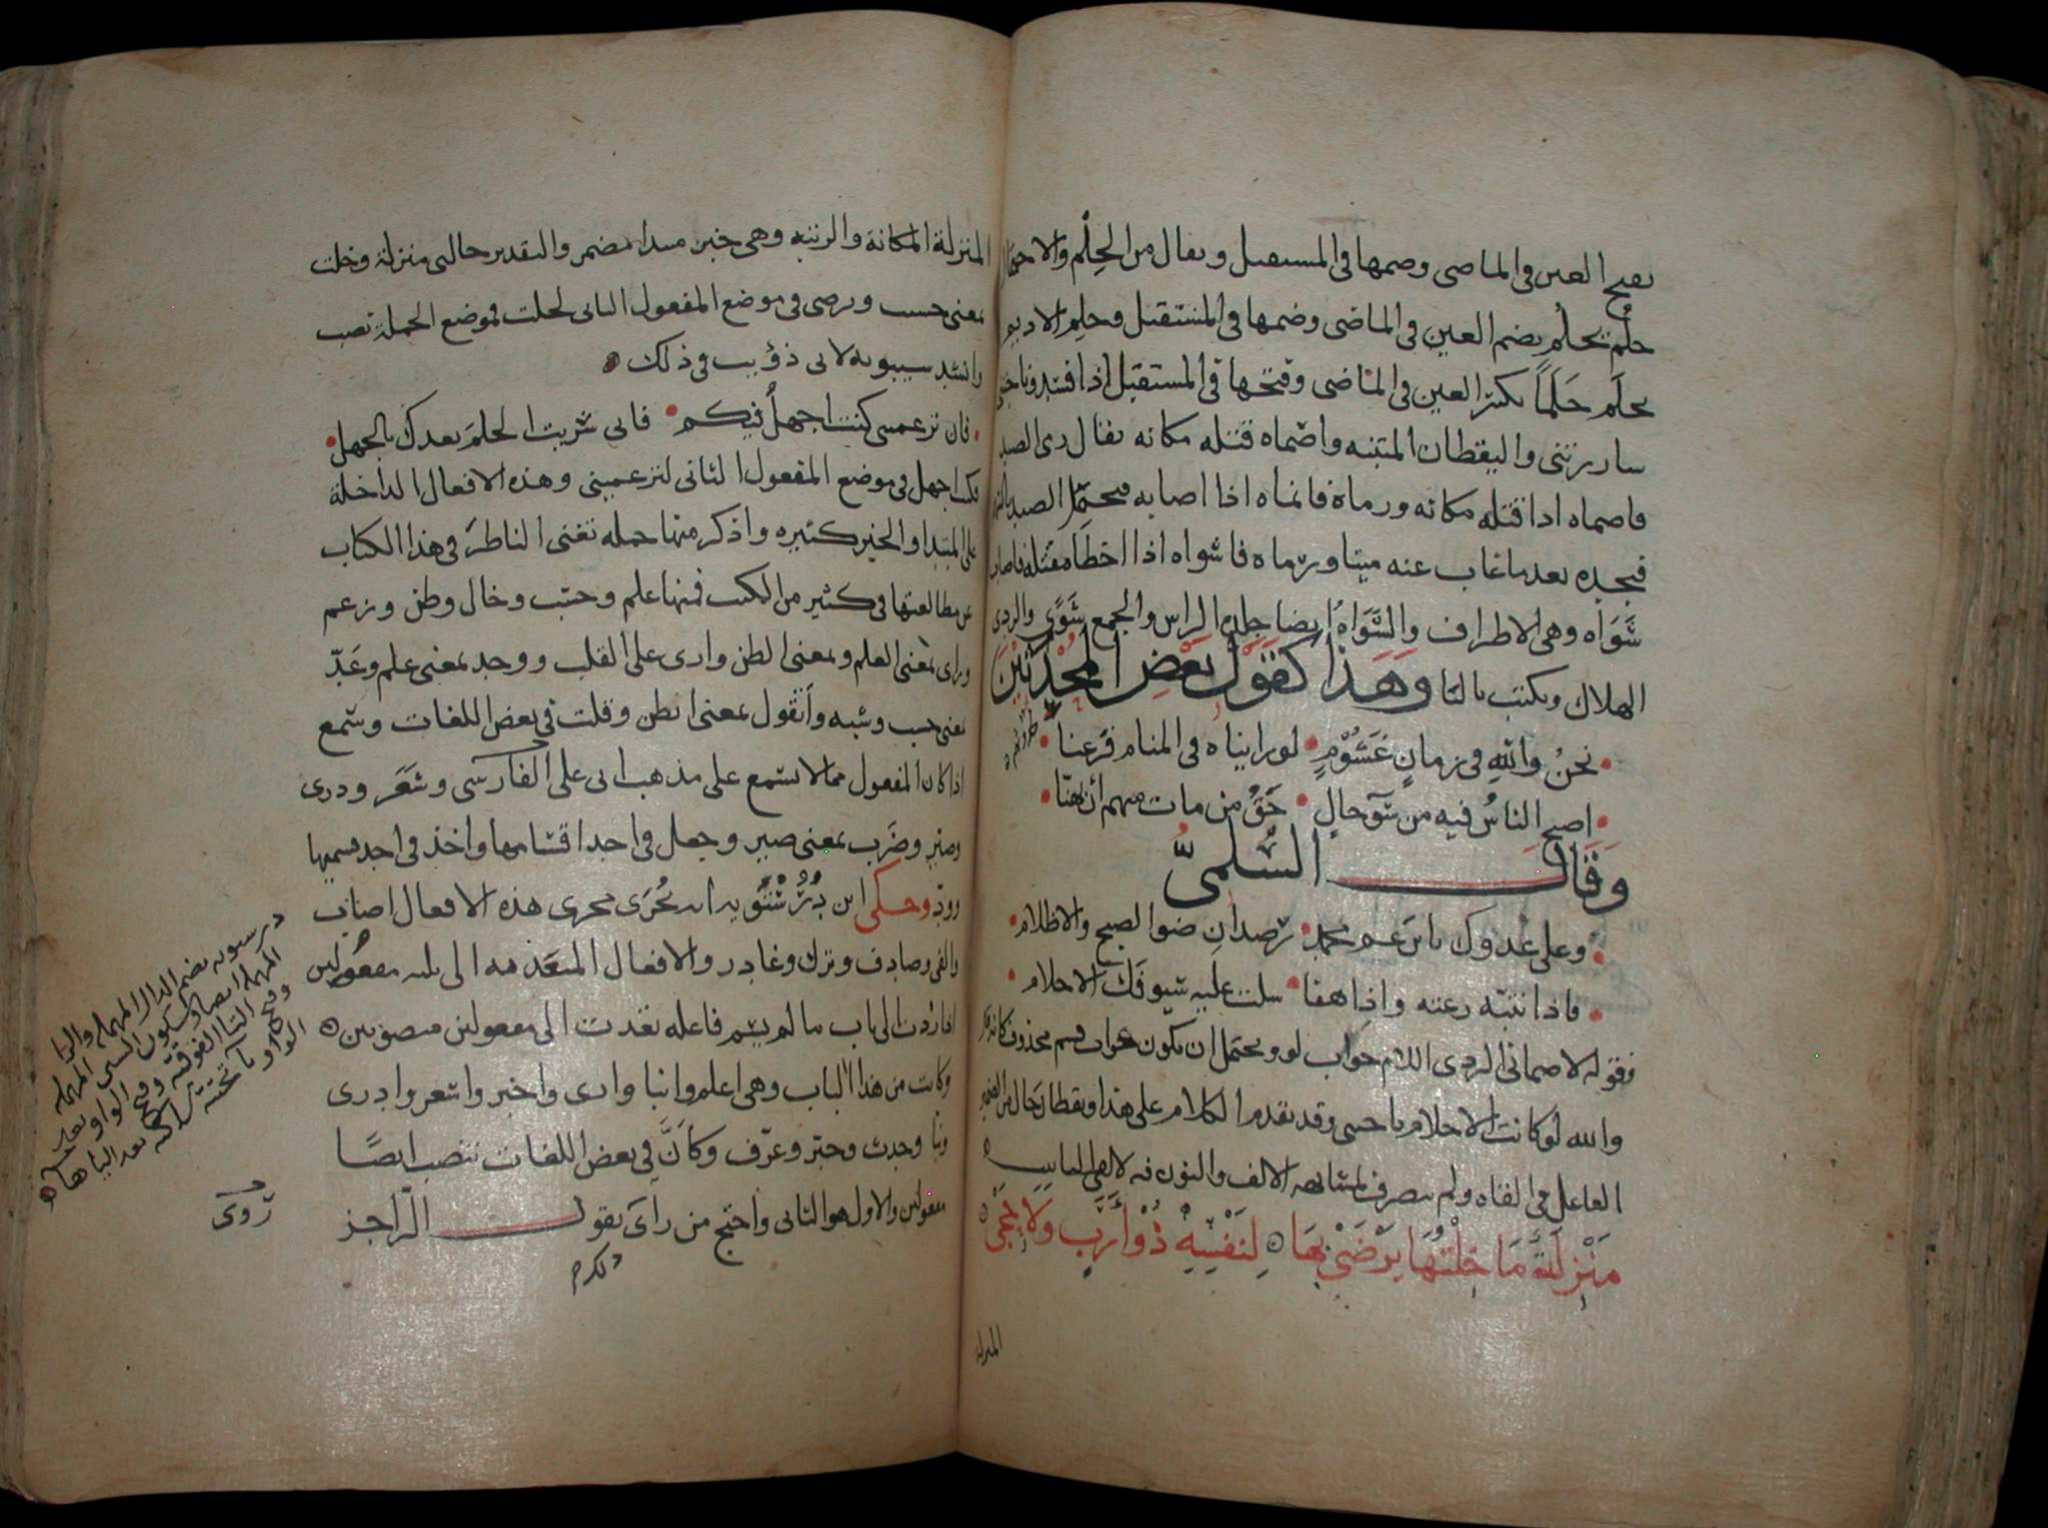 بفتح العين فى الماضى وضمها فى المستقبل ويقال من الحِلْم والاحتمال
حلُم يحلُم بضم العين فى الماضى وضمها فى المستقبل وحلِم الاديم
يحلَم حَلَماً بكسر العين فى الماضى وفتحها فى المستقبل اذا فسد
سار برتنى واليقظان المتنبه واصماه قتله مكانه يقال رمى الصيد
فاصماه اذا قتله مكانه ورماه فانماه اذا اصابه فيحتمل الصيد
فيجده بعد ما غاب عنه ميتا ورماه فاشواه اذا اخطا مقتله فاصاب
شَوَاه وهى الاطراف والشَّوَاةُ ايضا جلدة الراس والجمع شَوًى والردى
الهلاك ويكتب باليا وَهَذا كقَوْل بَعْضِ المُحْدَثِيْنَ
نحنُ واللهِ فى زمانٍ غَشُوْمٍ • لو رايناه فى المنام فزعنا •
اصبح الناسُ فيه من سَوٓ حالٍ • حَقُّ من مات منهم أن يهنّا •
وَقَالَ السُّلمىُّ
وعلى عدوك يا بن عم محمدٍ • رَصدانِ ضو الصبح والاظلام •
فاذا تنبّه رعته واذا هفا • سلت عليه سيوفَك الاحلام •
فقوله لاصمانى الردى اللام جواب لو ويحتمل ان يكون جواب قسم محذوف كانه
والله لو كانت الاحلام ناجتنى وقد تقدم الكلام على هذا ويقظان حال من الضمير
العامل فى القاه ولم ينصرف لمشابهة الالف والنون فيه لالفى التانيث
مَنْزِلَةٌ مَا خِلْتُهَا يَرْضَىْ بِهَا لِنَفْسِهِ ذُوْ أَرَبٍ وَلَا حِجَىْ
المنزلة
المنزلة المكانة والرتبه وهى خبر مبتدا مضمر والتقدير حالى منزلة وخلت
بمعنى حسب ويرضى فى موضع المفعول الثانى لخلت فموضع الجملة نصب
وانشد سيبويه لابى ذؤيب فى ذلك
• فان تزعمينى كنت اجهلُ فيكم • فانى شريت الحلمَ بعدك بالجهل •
فكنت اجهل فى موضع المفعول الثانى لتزعمينى وهذه الافعال الداخلة
على المبتدا والخبر كثيره واذكر منها جمله تغنى الناظرَ فى هذا الكتاب
عن مطالعتها فى كثير من الكتب فمنها علم وحسب وخال وظن وزعم
وراى بمعنى العلم وبمعنى الظن وارى على القلب ووجد بمعنى علم وعَدّ
بمعنى حسب وشبه وأتقول بمعنى اتظن وقلت فى بعض اللغات وسمع
اذا كان المفعول مما لا يسمع على مذهب ابى على الفارسى وشَعَر ودرى
وصيّر وضَرَب بمعنى صير وجعل فى احد اقسامها واخذ فى احد قسميها
وردّ وحكى ابن دُرُسْتَوَيه انه يُجْرَى مجرى هذه الافعال اصاب
والفى وصادف وترك وغادر والافعال المتعدّية الى ثلثه مفعولين
اذا رُدّت الى باب ما لم يسم فاعله تعدت الى مفعولين منصوبين
وكانت من هذا الباب وهى اعلم وانبا وارى واخبر واشعر وادرى
ونبا وحدث وخبّر وعرّف وكأنَّ فى بعض اللغات تنصب ايضًا
مفعولين والاول هو الثانى واحتج من راى يقول الرّاجز
درستويه بضم الدال المهمله والرا
المهمله ايضا وسكون السين المهمله
وفتح التا الفوقيه وفتح الواو بعد
الواو يا تحتيه ساكنه بعد اليا ها